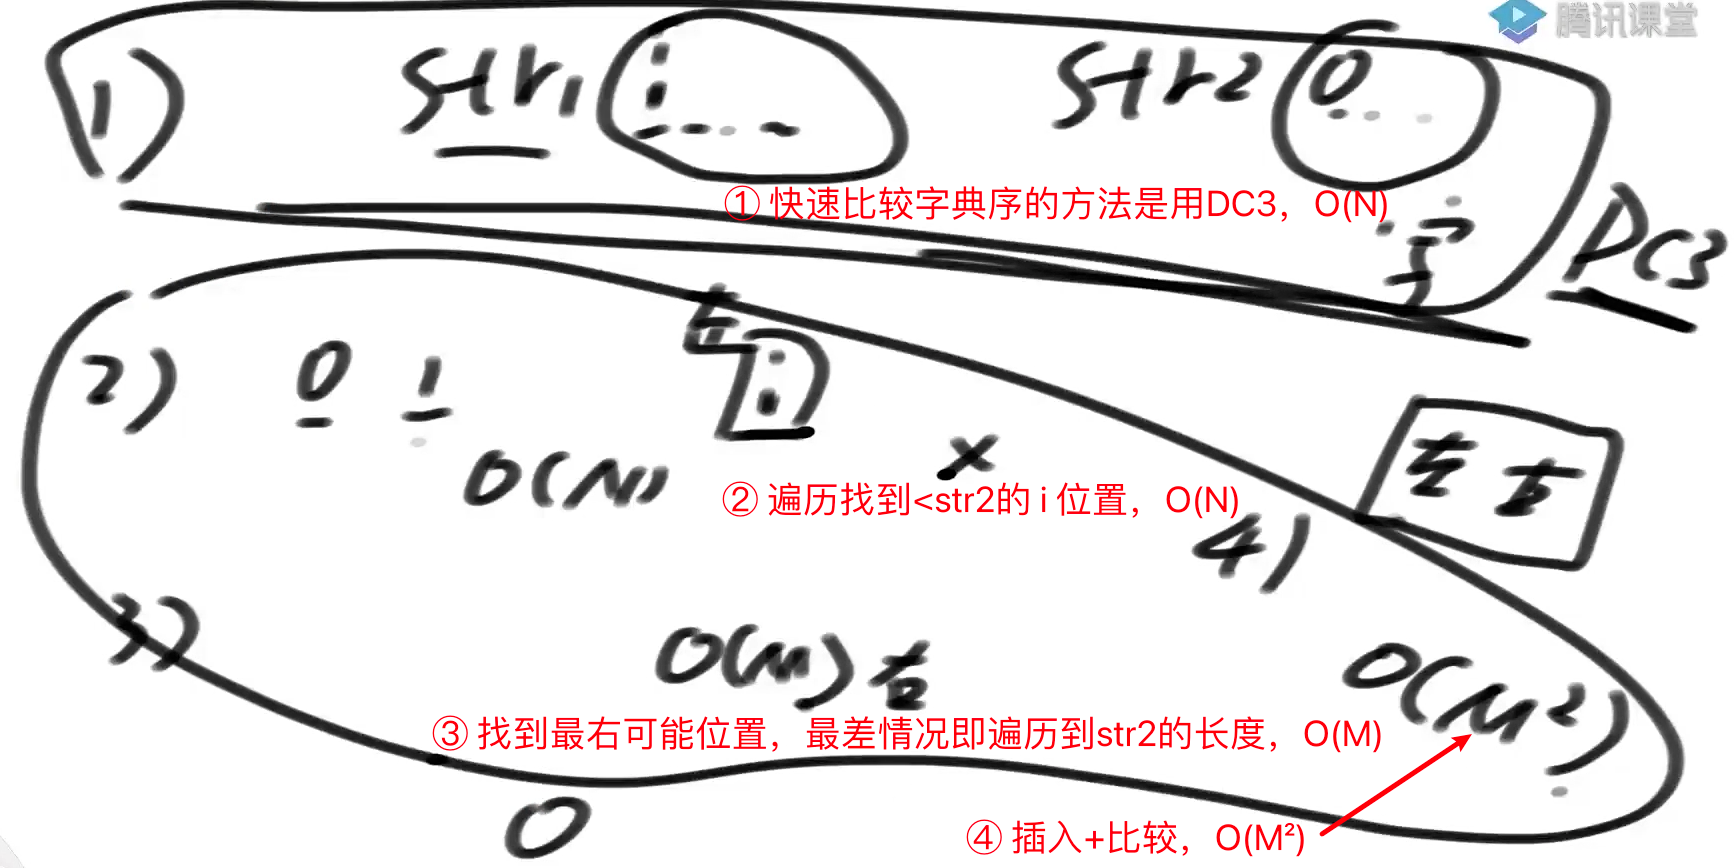 腾讯课堂
1) str1 str2 0
① 快速比较字典序的方法是用DC3，O(N)
DC3
2) 0 1 左 i
O(N) x
左 右
② 遍历找到<str2的 i 位置，O(N)
4)
3) O(M) 右 O(M²)
③ 找到最右可能位置，最差情况即遍历到str2的长度，O(M)
O
④ 插入+比较，O(M²)